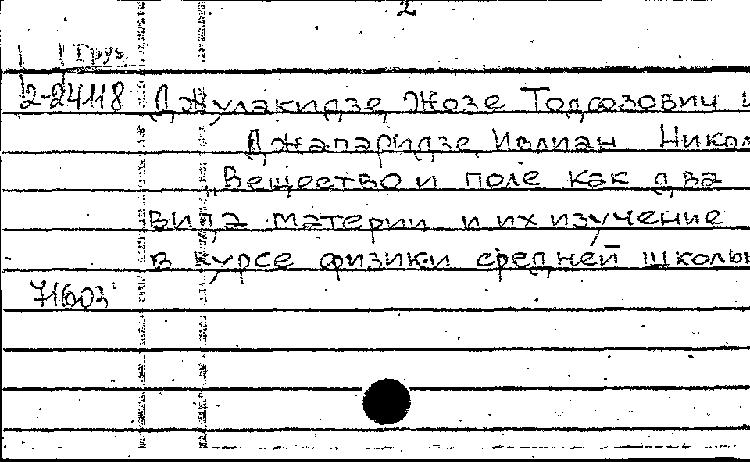 2
Груз.
2-24118 Джулакидзе Жозе Тодозович и
Джапаридзе Ивлиан Никол
„Вещество и поле как два
вида материи и их изучение
в курсе физики средней школы
71603